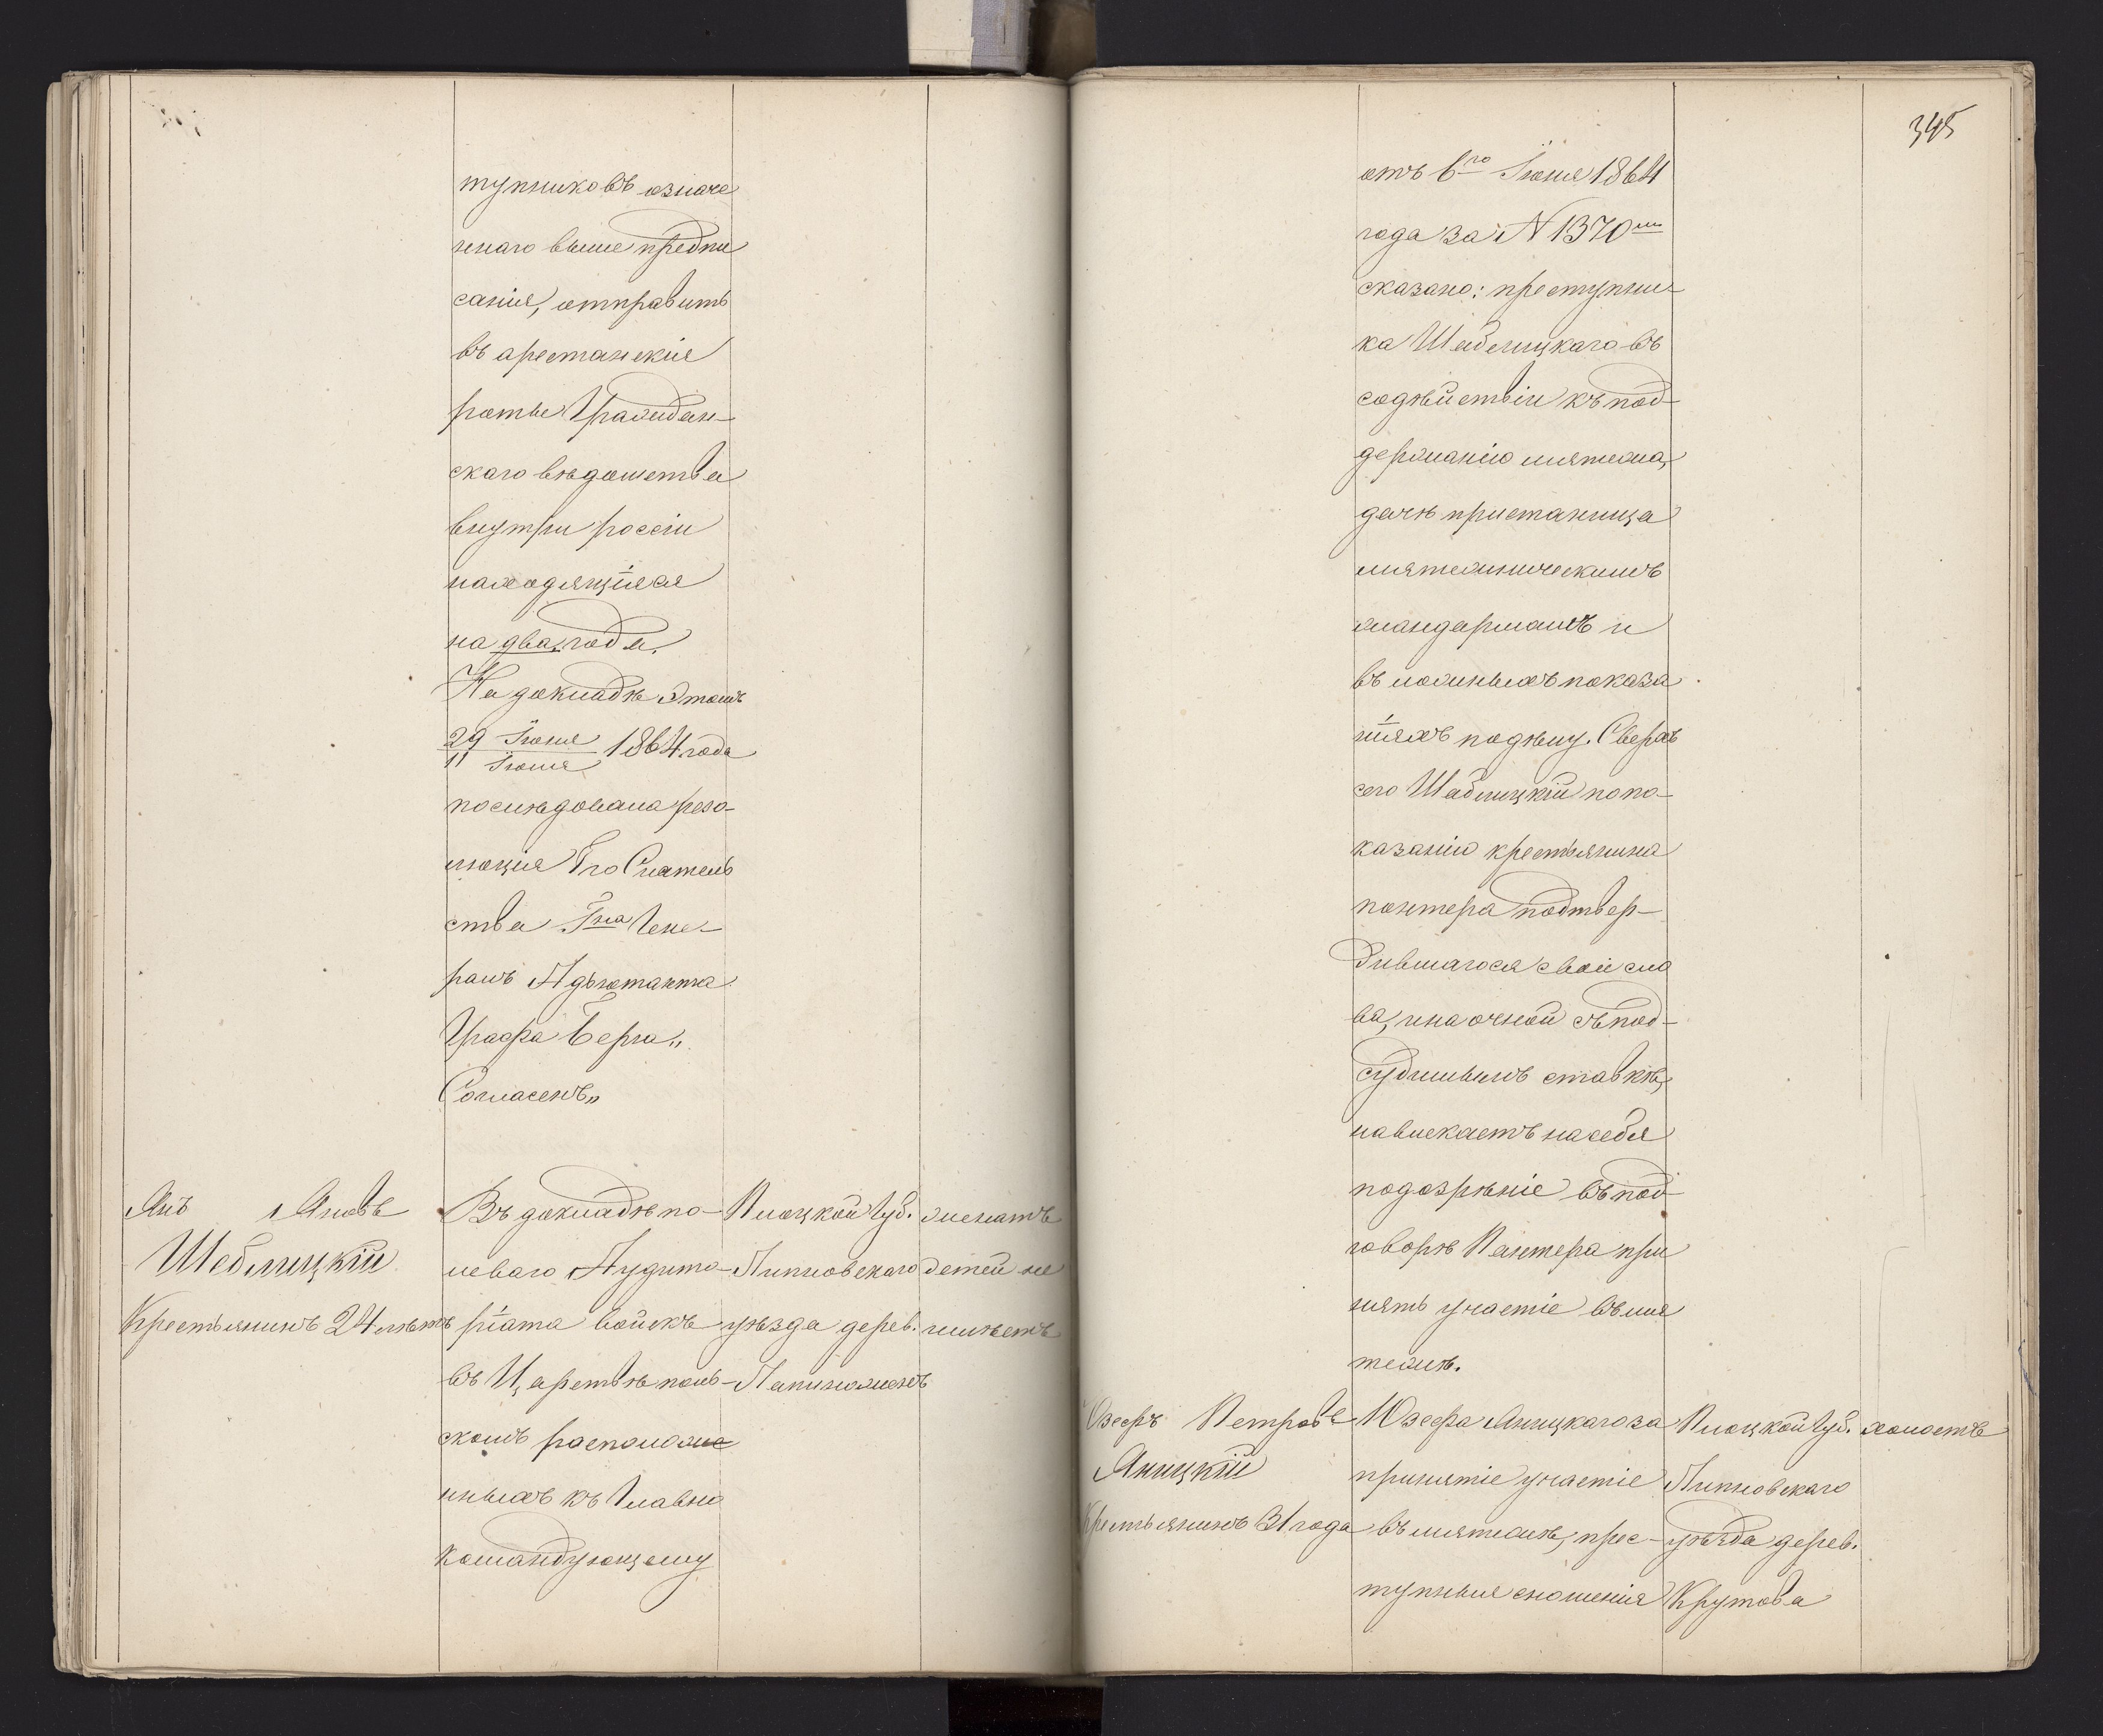 тупниковъ означе
ннаго выше предпи
санія, отправить
въ арестанскія
роты Граждан-
скаго вѣдомства
внутри россіи
находящіяся
на два года.
На докладѣ этомъ
29 Іюня / 11 Іюля 1864 года
послѣдовала резо-
люція Его Сіятель
ства Гна Гене-
ралъ Адъютанта
Графа Берга„
Согласенъ„
Янъ Яновъ
Шеблицкій
Крестьянинъ 24 лѣтъ
Въ докладѣ по-
леваго Аудито-
ріата войскъ
въ Царствѣ поль-
скомъ расположе
нныхъ къ Главно
командующему
Плоцкой Губ.
Липновскаго
уѣзда дерев.
женатъ
детей не
имѣетъ
345
отъ 6го Іюня 1864
года за N 1370мъ
сказано: преступни-
ка Шеблицкаго въ
содѣйствіи къ под-
держанію мятежа,
дачѣ пристанища
мятежническимъ
жандармамъ и
въ ложныхъ показа
ніяхъ по дѣлу. Сверхъ
сего Шеблицкій по по-
казанію крестьянина
пантера подтвер-
дившагося свои сло
ва, и на очной съ под-
судимымъ ставкѣ,
навлекаетъ на себя
подозрѣніе въ под-
говорѣ Пантера при
нять участіе въ мя
тежѣ.
Юзефъ Петровъ
Яницкій
Крестьянинъ 31 года
Юзефа Яницкаго за
принятіе участіе
въ мятежѣ, прес-
тупныя сношенія
Плоцкой Губ.
Липновскаго
уѣзда дерев.
Крутова
холостъ